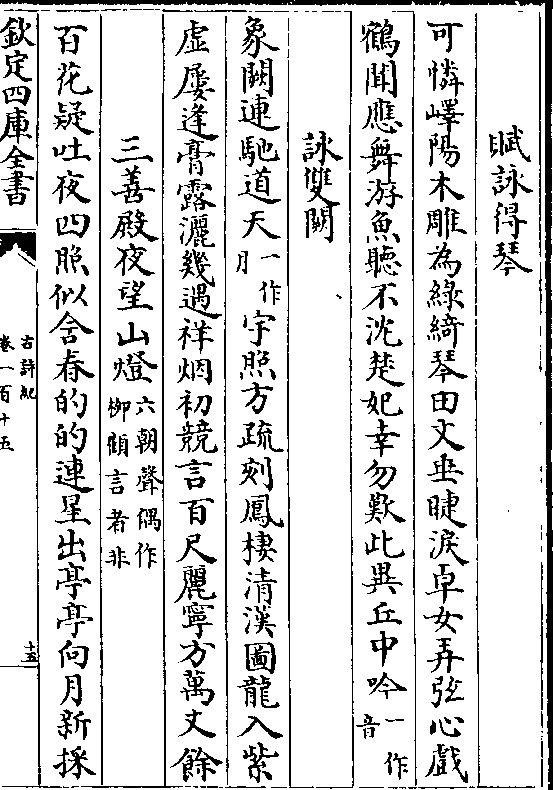 賦詠得琴
可憐嶧陽木雕為綠綺琴田文垂睫淚卓女弄弦心戲
鶴聞應舞游魚聽不沈楚妃幸勿歎此異丘中吟一作音
詠雙闕
象闕連馳道天一作月宇照方疏刻鳳棲清漢圖龍入紫
虛屢逢膏露灑幾遇祥烟初競言百尺麗寧方萬丈餘
三善殿夜望山燈六朝聲偶作柳顧言者非
百花疑吐夜四照似含春的的連星出亭亭向月新採
欽定四庫全書
古詩紀
卷一百十五
十五